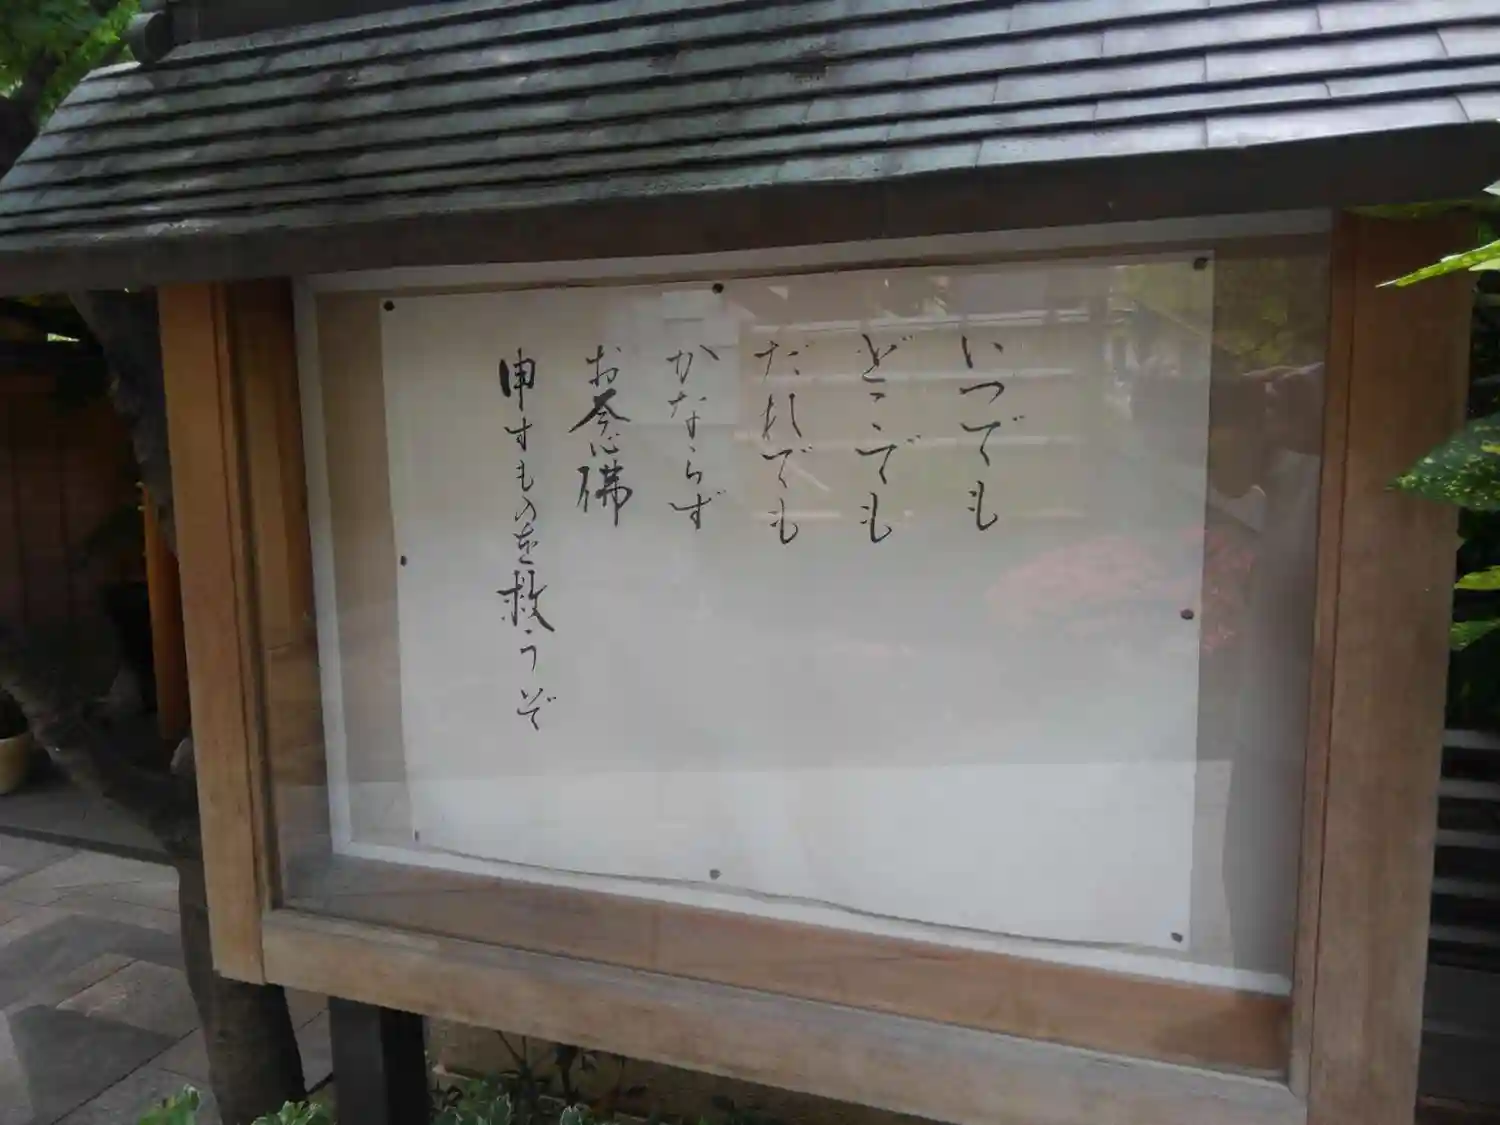 いつでも
どこでも
だれでも
かならず
お念佛
申すものを救うぞ